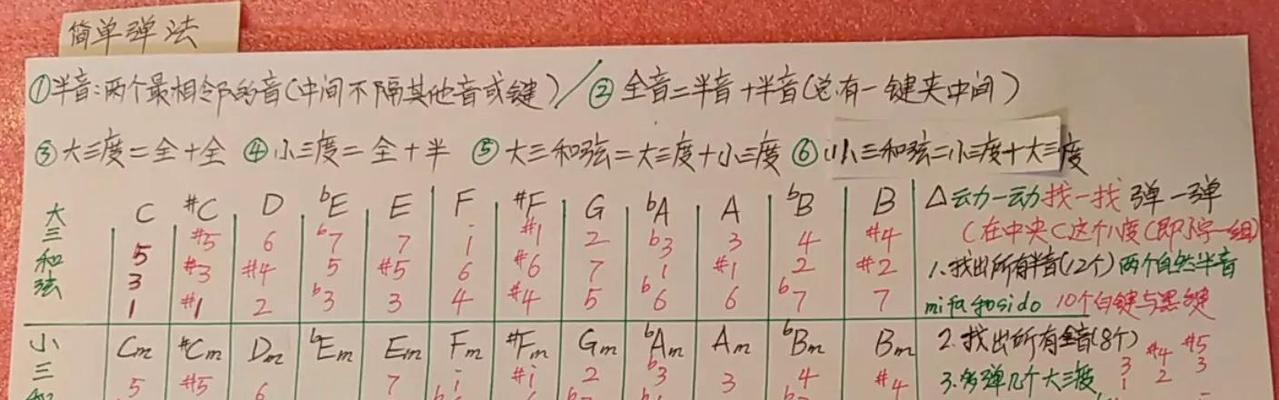 简单弹法
①半音:两个最相邻的音(中间不隔其他音或键)/②全音=半音+半音(总有一键夹中间)
③大三度=全+全 ④小三度=全+半 ⑤大三和弦=大三度+小三度 ⑥小三和弦=小三度+大三度
大三和弦
C #C D bE E F #F G bA A bB B
5 #5 6 b7 7 i #1 2 b3 3 4 #4
3 #3 #4 5 #5 6 #6 7 1 #1 2 #2
1 #1 2 b3 3 4 #4 5 b6 6 b7 7
△动一动找一找 弹一弹
(在中央C这个八度(即小字一组)
1.找出所有半音(12个)两个自然半音
mifa sido 10个白键与黑键
2.找出所有全音(8个)
3.多弹几个大三度
3 #4 #5
1 2 3
小三和
Cm #Cm Dm bEm Em Fm #Fm Gm bAm Am bBm Bm
5 #5 6 7 i #i 2 b3 3 4 #4